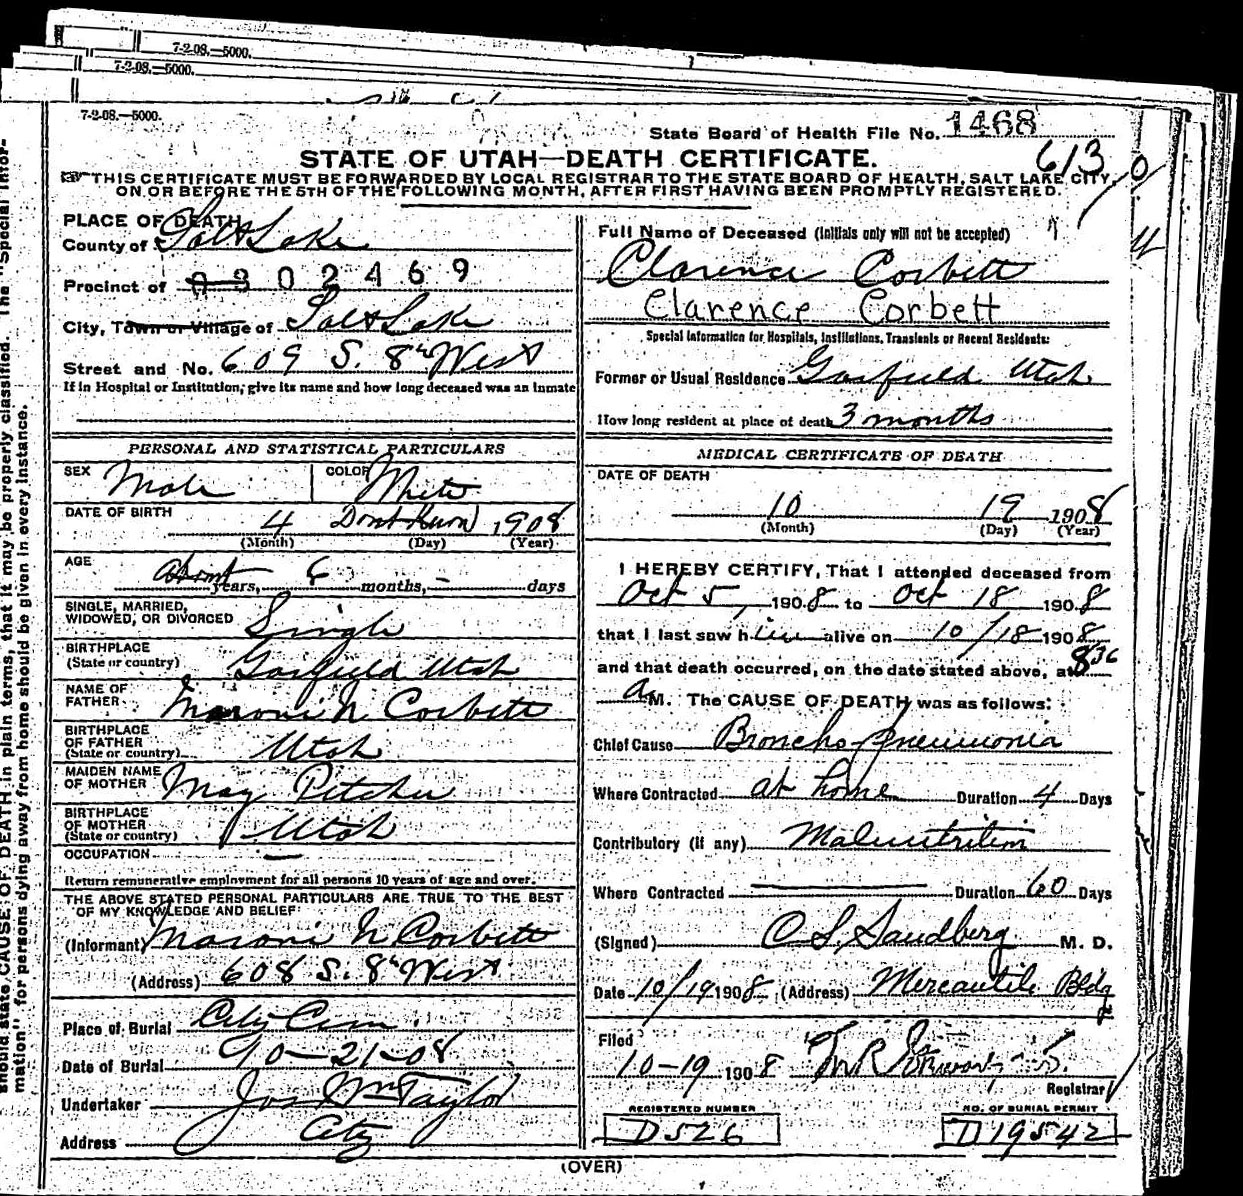 7-2-08.—5000.
7-2-08.—5000.
7-2-08.—5000.
State Board of Health File No. 1468
613
STATE OF UTAH—DEATH CERTIFICATE.
THIS CERTIFICATE MUST BE FORWARDED BY LOCAL REGISTRAR TO THE STATE BOARD OF HEALTH, SALT LAKE CITY,
ON OR BEFORE THE 5TH OF THE FOLLOWING MONTH, AFTER FIRST HAVING BEEN PROMPTLY REGISTERED.
PLACE OF DEATH
County of Salt Lake
Precinct of 0302469
City, Town or Village of Salt Lake
Street and No. 609 S. 8th West
If in Hospital or Institution, give its name and how long deceased was an inmate
PERSONAL AND STATISTICAL PARTICULARS
SEX Male COLOR White
DATE OF BIRTH 4 Dont Know 1908
(Month) (Day) (Year)
AGE about years, 6 months, - days
SINGLE, MARRIED,
WIDOWED, OR DIVORCED Single
BIRTHPLACE
(State or country) Garfield Utah
NAME OF
FATHER Maroni N Corbett
BIRTHPLACE
OF FATHER
(State or country) Utah
MAIDEN NAME
OF MOTHER May Pitcher
BIRTHPLACE
OF MOTHER
(State or country) Utah
OCCUPATION —
Return remunerative employment for all persons 10 years of age and over.
THE ABOVE STATED PERSONAL PARTICULARS ARE TRUE TO THE BEST
OF MY KNOWLEDGE AND BELIEF
(Informant) Maroni N Corbett
(Address) 608 S. 8th West
Place of Burial City Cem.
Date of Burial 10-21-08
Undertaker Jos Wm Taylor
Address City
Full Name of Deceased (Initials only will not be accepted)
Clarence Corbett
Clarence Corbett
Special Information for Hospitals, Institutions, Transients or Recent Residents:
Former or Usual Residence Garfield Utah
How long resident at place of death 3 months
MEDICAL CERTIFICATE OF DEATH
DATE OF DEATH
10 19 1908
(Month) (Day) (Year)
I HEREBY CERTIFY, That I attended deceased from
Oct 5, 1908 to Oct 18 1908
that I last saw him alive on 10/18 1908
and that death occurred, on the date stated above, at 8 36
a M. The CAUSE OF DEATH was as follows:
Chief Cause Broncho-pneumonia
Where Contracted at home Duration 4 Days
Contributory (if any) Malnutrition
Where Contracted — Duration 60 Days
(Signed) C S. Sandberg M. D.
Date 10/19 1908 (Address) Mercantile Bldg
Filed
10-19 1908
Registrar
REGISTERED NUMBER
D 526
NO. OF BURIAL PERMIT
D 19542
(OVER)
should state CAUSE OF DEATH in plain terms, that it may be properly classified. The "Special Infor-
mation" for persons dying away from home should be given in every instance.